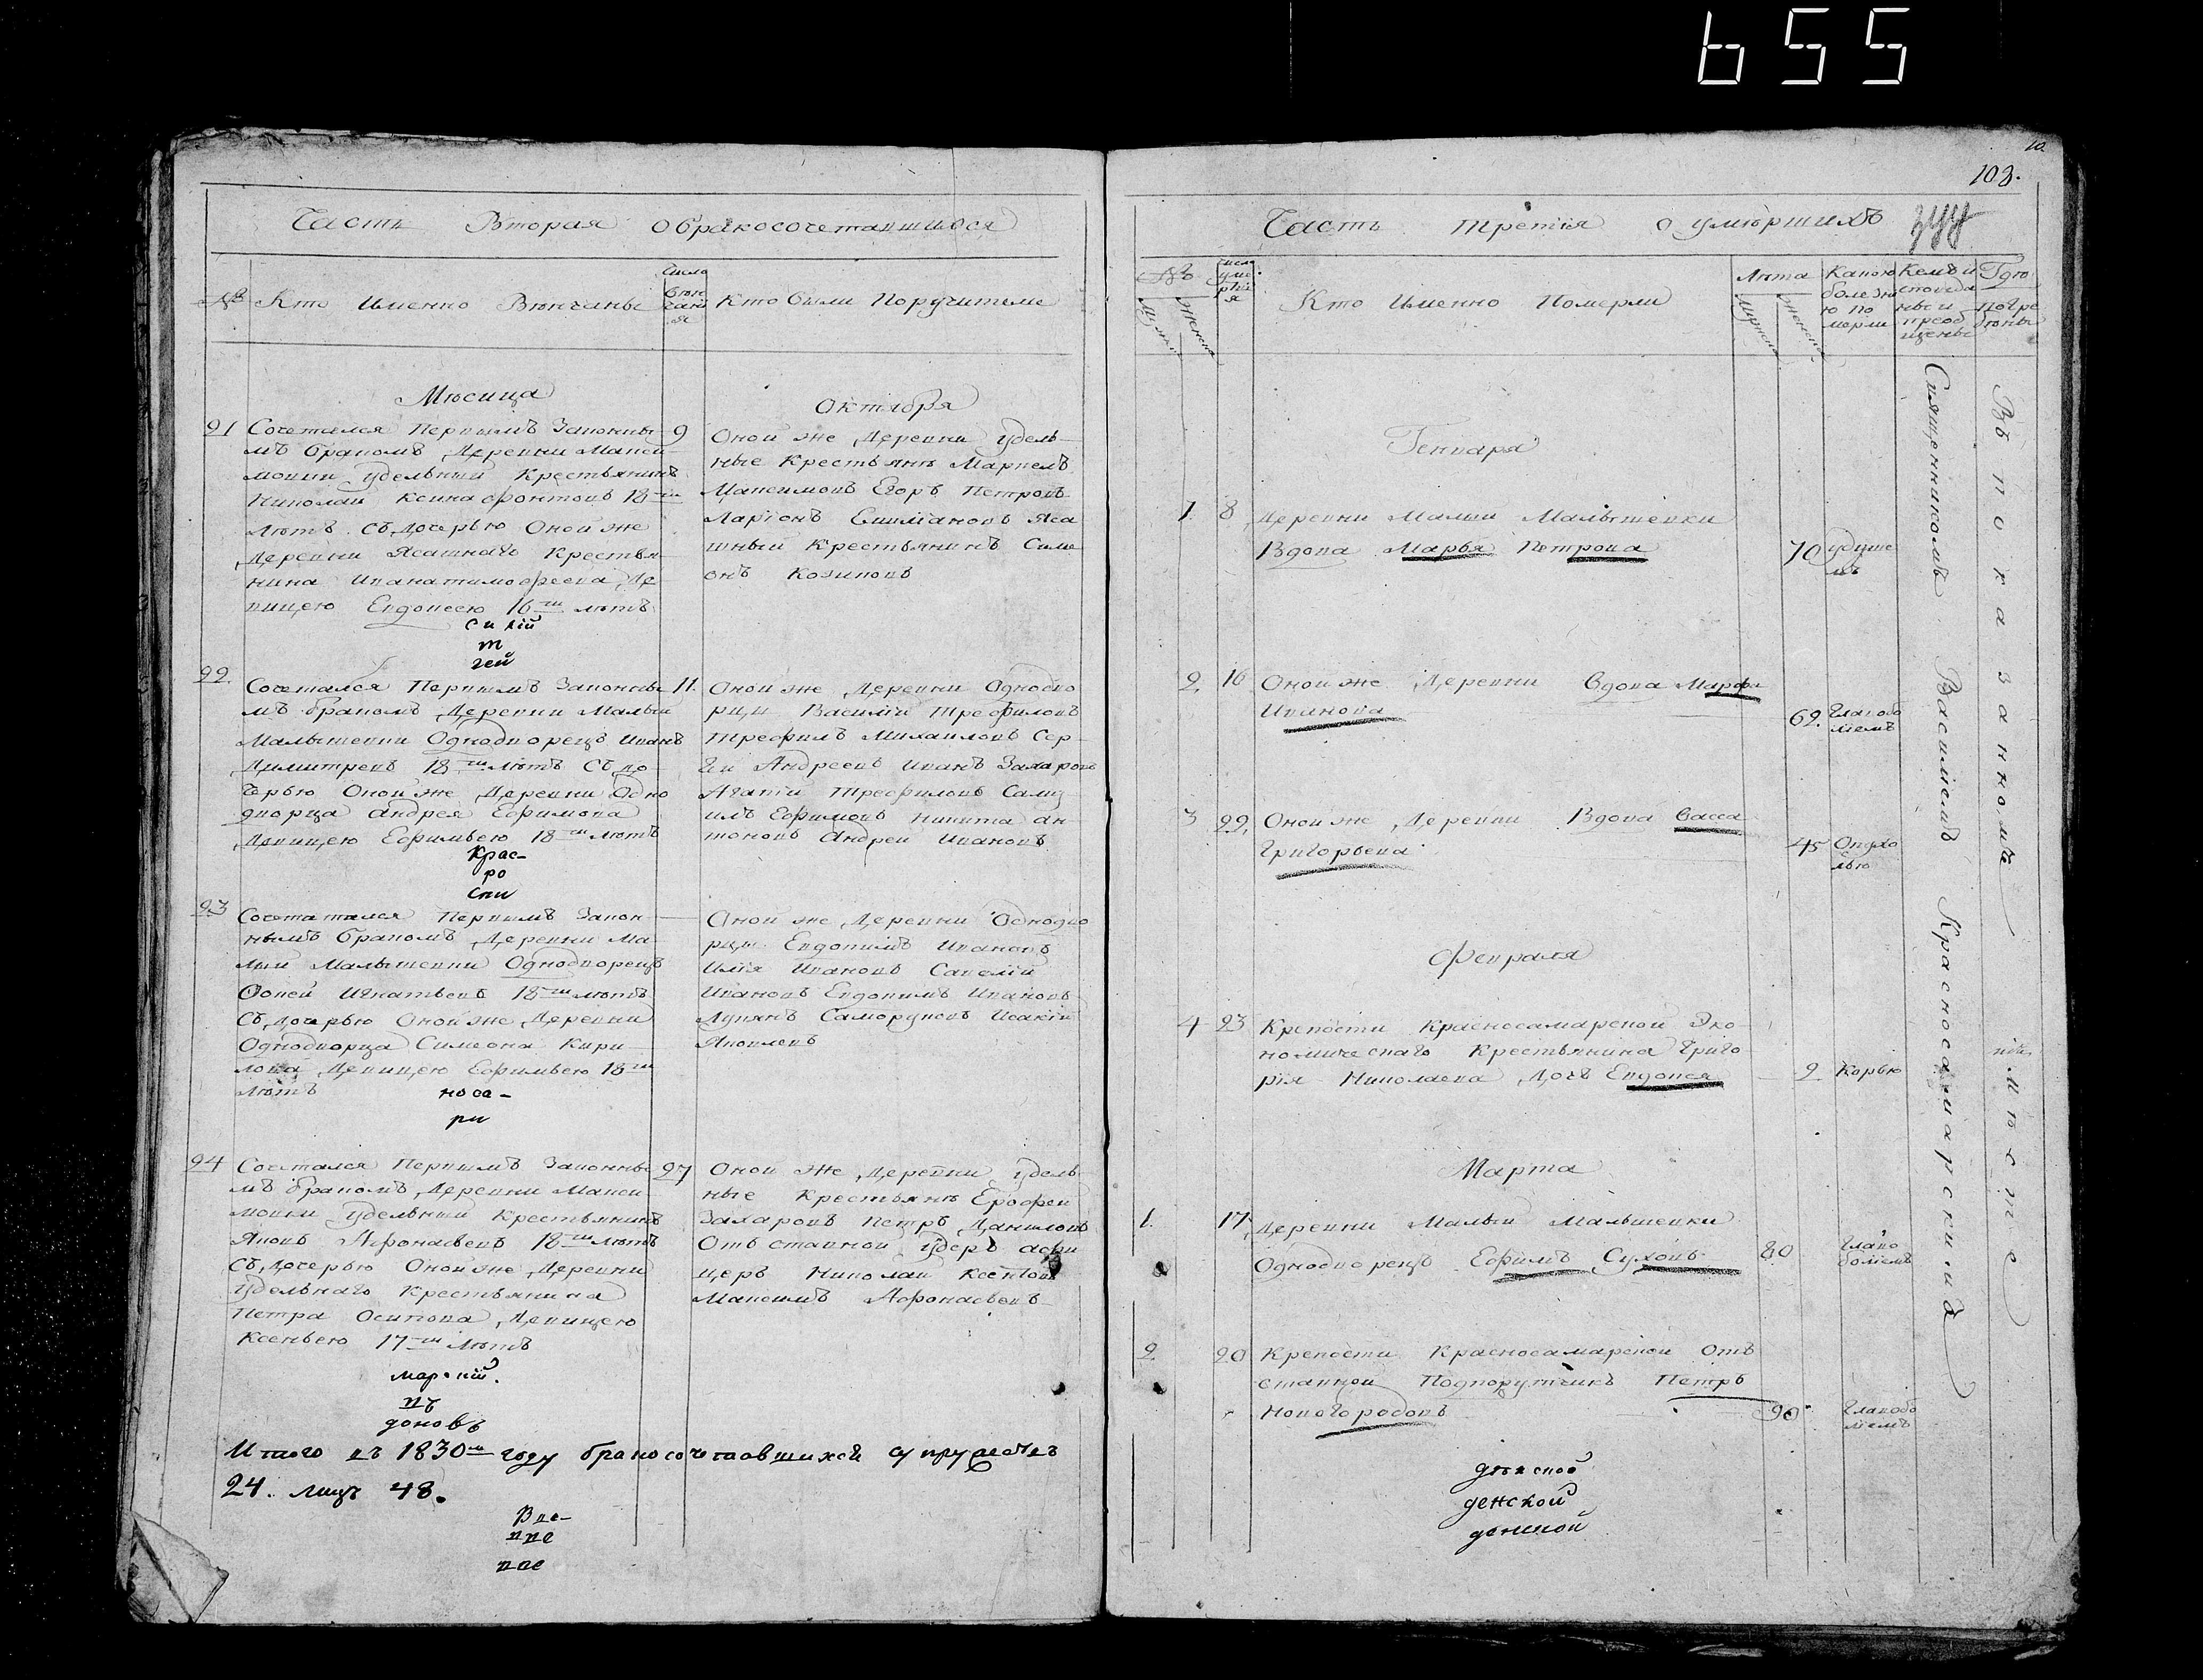 655
Часть Вторая о бракосочетавшихся
№ Кто Именно Венчаны
Число венчания
Кто были Поручители
Месяца Октября
21 Сочетался Первымъ Законны 9
мъ бракомъ Деревни Макси
мовки удельный Крестьянинъ
Николай Ксинафонтовъ 18ти
летъ съ дочерью Оной же
Деревни Ясашнаго Крестья
нина Ивана тимофеева де
вицею Евдокеею 16ти летъ
Оной же Деревни удель
ные Крестьяне Маркелъ
Максимовъ Егоръ Петровъ
Ларіонъ Емиліановъ Яса
шный Крестьянинъ Симе
онъ Козиновъ
си лій
т
гей
22 Сочетался Первымъ Законны 11.
мъ бракомъ Деревни Малый
Малышевки Однодворецъ Иванъ
Димитревъ 18ти летъ Съ до
черью Оной же Деревни Одно
дворца Андрея Ефимова
Девицею Ефимьею 18ти летъ
Оной же Деревни Однодво
рцы Василій Трефиловъ
Трефилъ Михайловъ Сер
гей Андреевъ Иванъ Захаровъ
Агапій Трефиловъ Саму
илъ Ефимовъ Никита Ан
тоновъ Андрей Ивановъ
Крас-
ро
Спи
23 Сочетатался Первымъ Закон
нымъ бракомъ Деревни Ма
лый Малышевки Однодворецъ
Фокей Игнатьевъ 18ти летъ
Съ дочерью Оной же Деревни
Однодворца Симеона Кири
лова Девицею Ефимьею 18ти
летъ
Оной же Деревни Однодво
рцы Евдокимъ Ивановъ
Илія Ивановъ Савелій
Ивановъ Евдокимъ Ивановъ
Лукянъ Саморуковъ Исакій
Яковлевъ
носа-
ри
24 Сочетался Первымъ Законны 27
мъ бракомъ Деревни Макси
мовки удельный Крестьянинъ
Яковъ Афонасьевъ 18ти летъ
Съ дочерью Оной же Деревни
удельнаго Крестьянина
Петра Осипова Девицею
Ксеньею 17ти летъ
Оной же Деревни удель
ные Крестьяне Ерофей
Захаровъ Петръ Даниловъ
Отъставной ундеръ афи
церъ Николай
Максимъ Афонасьевъ
марскій.
въ
доновъ
Итого въ 1830м году бракосочетавшихся супружествъ
24. лицъ 48.
Вве-
вве
вве
103.
Часть третія о умершихъ
№
Число умертвія
Кто Именно Померли
Лета
Мужеска Женска
Какою болезнею померли
Кемъ исповеданы и преобщены
Где погребены
Генваря
1. 8 Деревни Малыи Малышевки
Вдова Марья Петрова 70 удушьемъ
2. 16 Оной же Деревни Вдова Марфа
Иванова 62. Главоболіемъ
3 22. Оной же Деревни Вдова Васса
Григорьева 45 Опухолью
Февраля
4 23 Крепости Красносамарской Эко
номическаго Крестьянина Григо
рія Николаева Дочь Евдокея 2 Корью
Марта
1. 17. Деревни Малыи Малышевки
Однодворецъ Ефимъ Суховъ 80 Главоболіемъ
2. 20 Крепости Красносамарской Отъ
ставной Подпорутчикъ Петръ
Новогородовъ 90 Главоболіемъ
Священникомъ Василіемъ Красносамарскимъ
Въ показанномъ месте
денской
денской